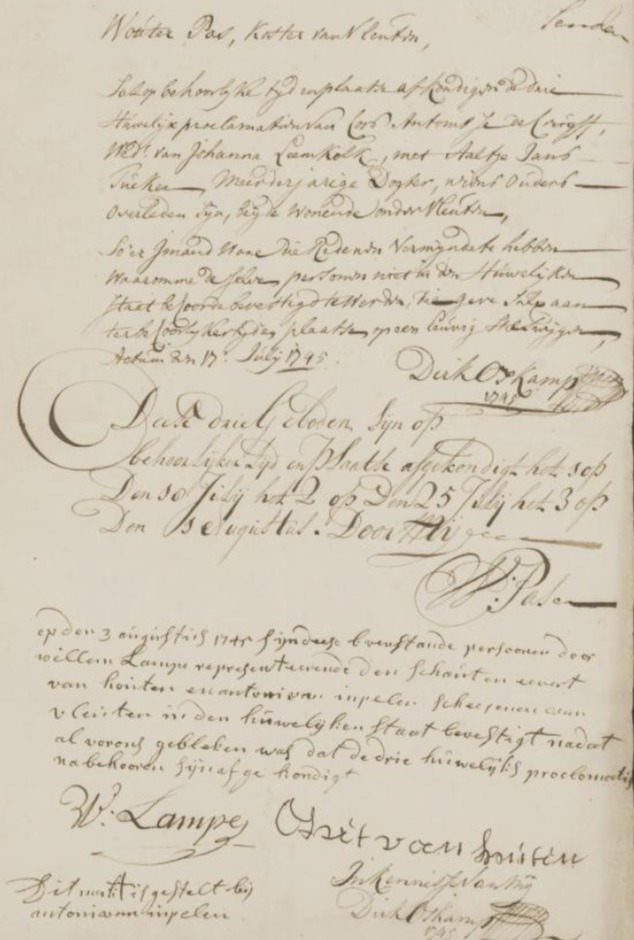 Wouter Pas, Koster van Vleuten,
Sal op behoorlyke tyd en plaatse afkondigen de drie
Huwelijx proclamatien van Cors Antonisse de Cruyff,
Wedr. van Johanna Leemkolk, met Aaltje Jans
Meerderjarige Dogter, wiens Ouders
overleden syn, beyde wonende onder Vleuten,
So'er Jmand Waare die Redenen vermynde te hebben
waaromme de selve persoonen niet in den Huwelijken
staat behoorde bevestigd te werden, die geve sulx aan
ter behoorlyker tyd en plaatse, op een eeuwig stilswijgen,
Actum den 17e. July 1745.
Dirk Oskamp
1745
Deese drie Geboden sijn op
behoorlijker Tyd en Plaatse afgekondigt het 1 op
Den 18 Julij het 2 op Den 25 Julij het 3 op
Den 1 Augustus. Door Mij
W: Pas
op den 3 augustus 1745 sijn deese bovenstande persoonen door
willem Lampe representeerende den schouten evert
van houten en antoni van impelen schepenen van
vleuten in den huwelijken staat bevestigt nadat
al vorens gebleben was dat de drie huwelijks proclomatis
na behooren sijn afge kondigt
W: Lampe
Evert van houten
Dit merk is gestelt bij
antoni van impelen
In kennisse van mij
Dirk Oskamp
1745